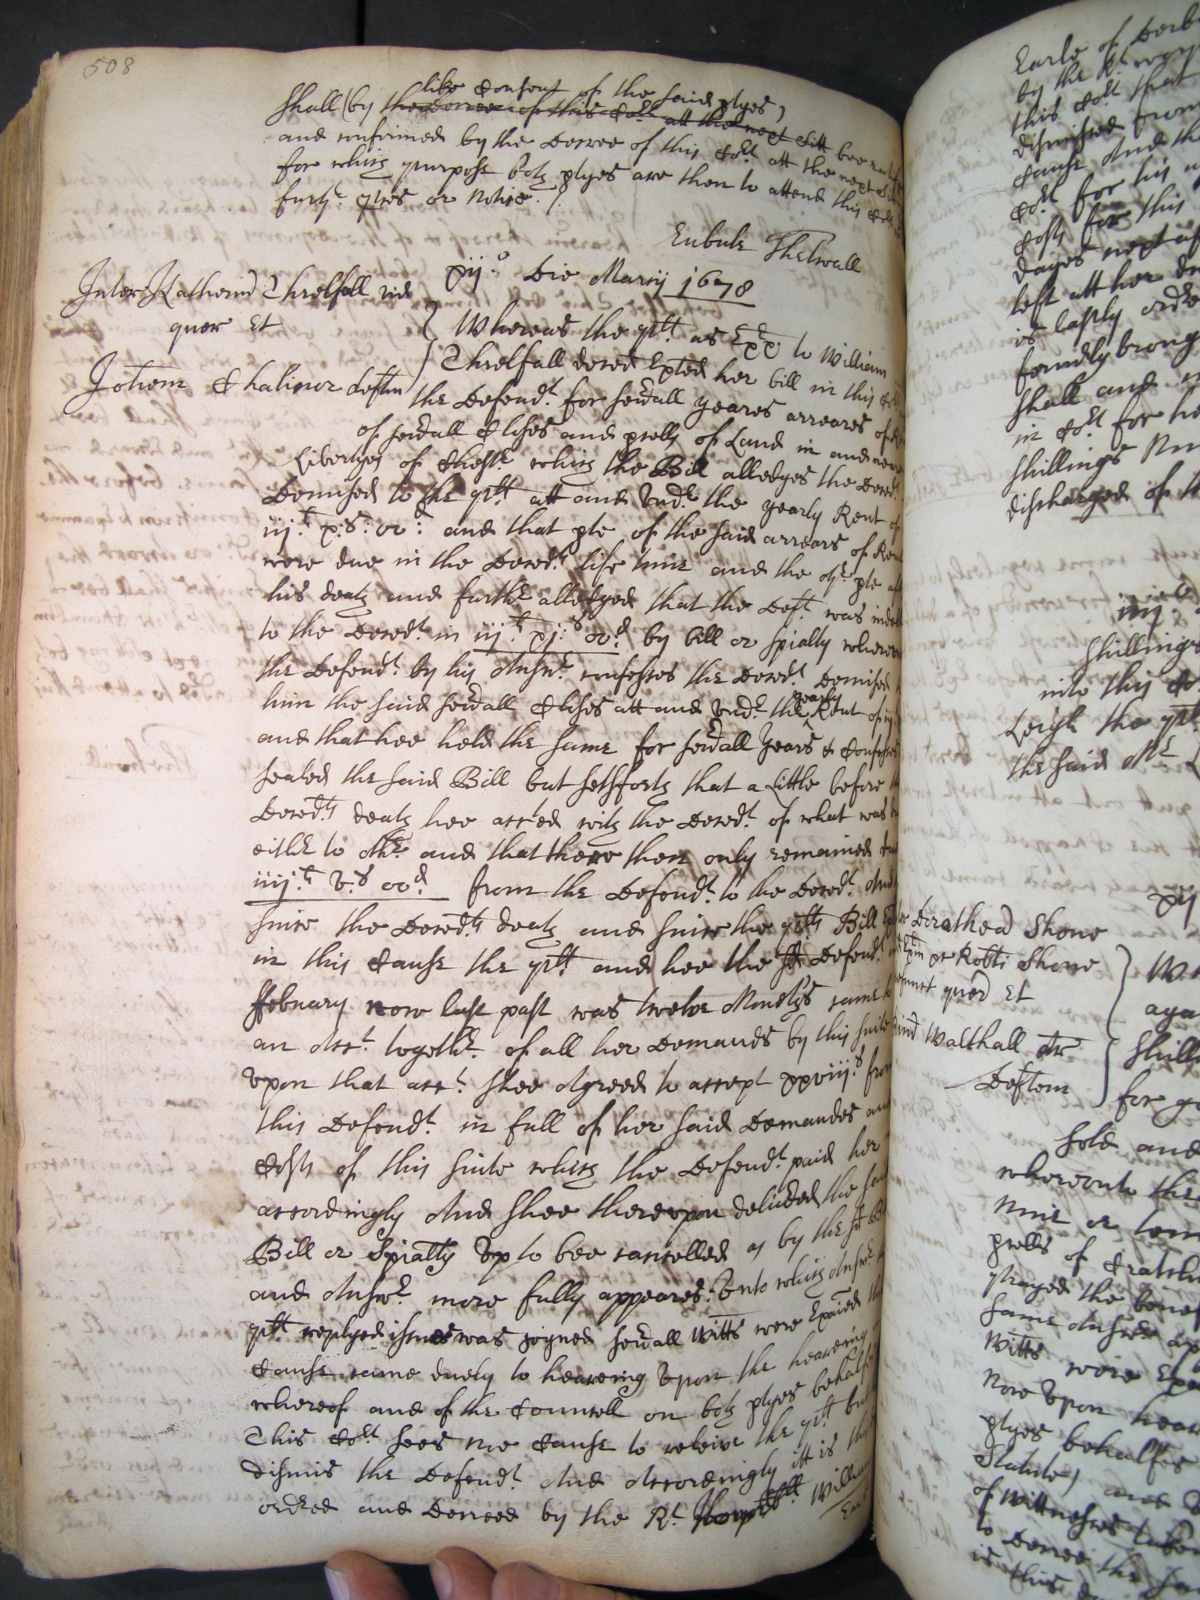 508
like Consent of the said ptyes)
Shall (by the decree of this Cort att the next sitt bee
and confirmed by the Decree of this Cort att the next
for which purpose both ptyes are then to attend this Cort
furthr. or notice ./.
Eubule Thelwall
xij.o Die Marcij 1678
Inter Katherin Threlfall vid
quer Et
Jotham Chalinor deften
Whereas the plt. as Exx to William
Threlfall deced Exted her bill in this Cort
the Defendt. for sevall yeares arreares of
of sevall Closes and pcells of Land in and neare
Libertyes of Chestr. which the Bill alledges the Decedt.
Demised to the plt att and Undr. the yearly Rent of
iij.li x.s: oo: and that pte of the said arrears of Rent
were due in the Decedts life time and the othr. pte aft
his death and furthr alledged that the Deft. was indebt
to the Decedt. in iij.li xj.s oo.d by bill or spialty whereunto
the Defendt. by his Answr. confesses the Decedt. Demised
yearly
him the said sevall Closes att and Undr. the Rent of
and that hee held the same for sevall Years & Confesses
sealed the said Bill but setts forth that a Little before
Decedts death hee acc'ted with the Decedt. of what was
eithr to othr. and that there then only remained due
iiij.li v.s oo.d from the Defendt. to the Decedt. And
since the Decedts death and since the plts Bill
in this Cause the plt and hee the sd Defendt.
ffebruary now last past was twelve Moneths came to
an Acct. togethr. of all her Demands by this suite
Vpon that acct. shee Agreed to accept xxviij.s from
this Defendt. in full of her said Demandes and
Costs of this suite which the Defendt. paid her
accordingly And shee thereupon delivred the said
Bill or Spialty Vp to bee cancelled as by the sd Bill
and Answr. more fully appeares: Vnto which Answr.
plt replyed issue was joyned sevall Witts were Exaied
Cause came duely to heareing Vpon the heareing
whereof and of the Councell on both ptyes behalfes
This Cort sees noe Cause to releive the plt but
dismis the Defendt. And Accordingly itt is this
ordred and Decreed by the Rt. Honoble William
Ear
Earle of Derby
by the Rt.
this Cort that
dismissed from
Cause And th
Cort for his
Costs for this
dayes next
left att her
is lastly ordr
formerly broug
shall and
in Cort for h
Shillings
discharged of
iiij
Shillings
into this Co
Leigh the plt
the said Mr.
xij
Dorathea Shone
or Robti Shone
quer Et
Walthall
Deften
W
aga
Shill
for
sold and
whereonto the
pcells of
prayed the benef
same Answr
Witts were Exa
Now Vpon hear
ptyes behalfes
Statute)
of Wittnesses taken
to Decree the
is this